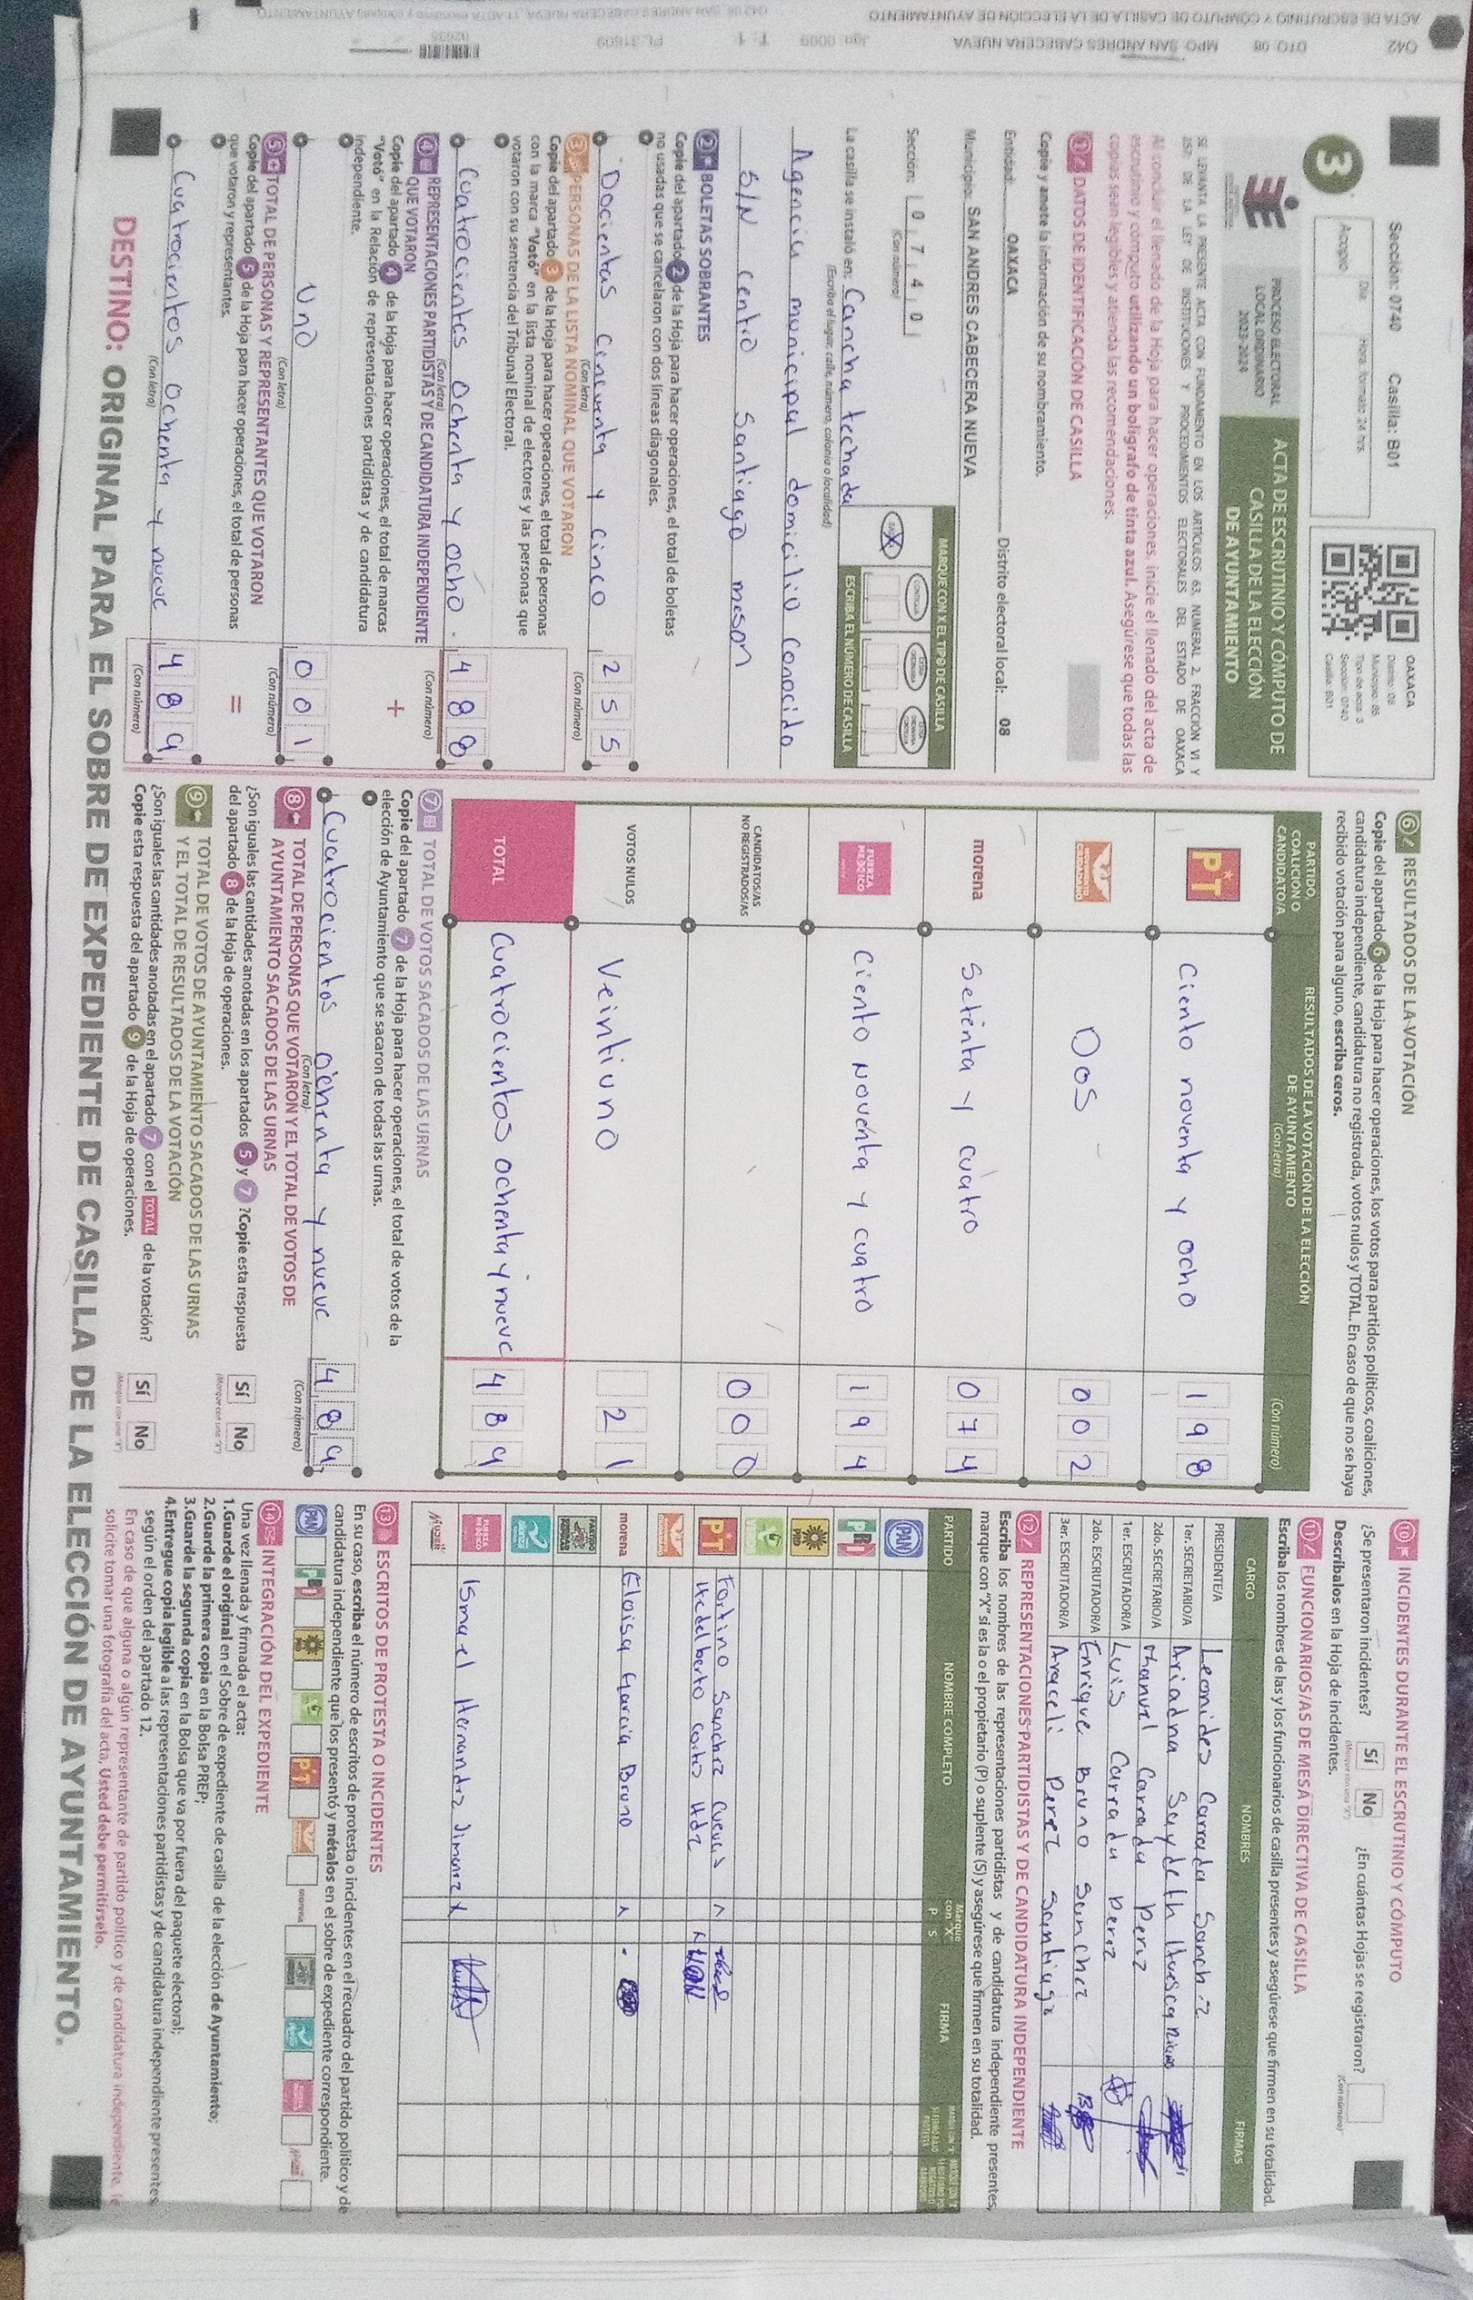 Sección: 0740 Casilla: B01
3
Acopio
Día:
Hora: formato 24 hrs.
OAXACA
Distrito: 08
Municipio: 86
Tipo de acta: 3
Sección: 0740
Casilla: B01
PROCESO ELECTORAL
LOCAL ORDINARIO
2023-2024
ACTA DE ESCRUTINIO Y CÓMPUTO DE
CASILLA DE LA ELECCIÓN
DE AYUNTAMIENTO
SE LEVANTA LA PRESENTE ACTA CON FUNDAMENTO EN LOS ARTÍCULOS 63, NUMERAL 2, FRACCIÓN VI Y
257; DE LA LEY DE INSTITUCIONES Y PROCEDIMIENTOS ELECTORALES DEL ESTADO DE OAXACA
Al concluir el llenado de la Hoja para hacer operaciones, inicie el llenado del acta de
escrutinio y cómputo utilizando un bolígrafo de tinta azul. Asegúrese que todas las
copias sean legibles y atienda las recomendaciones.
1 DATOS DE IDENTIFICACIÓN DE CASILLA
Copie y anote la información de su nombramiento.
Entidad: OAXACA Distrito electoral local: 08
Municipio: SAN ANDRES CABECERA NUEVA
Sección: 0 7 4 0
(Con número)
MARQUE CON X EL TIPO DE CASILLA
ESCRIBA EL NÚMERO DE CASILLA
La casilla se instaló en: Cancha techada
(Escriba el lugar, calle, número, colonia o localidad)
Agencia municipal domicilio conocido
S/N centro Santiago meson
2 BOLETAS SOBRANTES
Copie del apartado 2 de la Hoja para hacer operaciones, el total de boletas
no usadas que se cancelaron con dos líneas diagonales.
Docientas Cincuenta y cinco 2 5 5
(Con letra) (Con número)
3 PERSONAS DE LA LISTA NOMINAL QUE VOTARON
Copie del apartado 3 de la Hoja para hacer operaciones, el total de personas
con la marca "Votó" en la lista nominal de electores y las personas que
votaron con su sentencia del Tribunal Electoral.
Cuatrocientas Ochenta y ocho. 4 8 8
(Con letra) (Con número)
4 REPRESENTACIONES PARTIDISTAS Y DE CANDIDATURA INDEPENDIENTE
QUE VOTARON
Copie del apartado 4 de la Hoja para hacer operaciones, el total de marcas
"Votó" en la Relación de representaciones partidistas y de candidatura
independiente.
+
Uno 0 0 1
(Con letra) (Con número)
5 TOTAL DE PERSONAS Y REPRESENTANTES QUE VOTARON
Copie del apartado 5 de la Hoja para hacer operaciones, el total de personas
que votaron y representantes.
=
Cuatrocientos Ochenta y nueve 4 8 9
(Con letra) (Con número)
6 RESULTADOS DE LA VOTACIÓN
Copie del apartado 6 de la Hoja para hacer operaciones, los votos para partidos políticos, coaliciones,
candidatura independiente, candidatura no registrada, votos nulos y TOTAL. En caso de que no se haya
recibido votación para alguno, escriba ceros.
PARTIDO, COALICIÓN O CANDIDATO/A
RESULTADOS DE LA VOTACIÓN DE LA ELECCIÓN DE AYUNTAMIENTO
(Con letra) (Con número)
PT Ciento noventa y ocho 1 9 8
MOVIMIENTO CIUDADANO Dos 0 0 2
morena Setenta y cuatro 0 7 4
FUERZA MÉXICO Ciento Noventa y cuatro 1 9 4
CANDIDATOS/AS NO REGISTRADOS/AS 0 0 0
VOTOS NULOS Veintiuno 2 1
TOTAL Cuatrocientos ochenta y nueve 4 8 9
7 TOTAL DE VOTOS SACADOS DE LAS URNAS
Copie del apartado 7 de la Hoja para hacer operaciones, el total de votos de la
elección de Ayuntamiento que se sacaron de todas las urnas.
Cuatrocientos ochenta y nueve 4 8 9
(Con letra) (Con número)
8 TOTAL DE PERSONAS QUE VOTARON Y EL TOTAL DE VOTOS DE
AYUNTAMIENTO SACADOS DE LAS URNAS
¿Son iguales las cantidades anotadas en los apartados 5 y 7? Copie esta respuesta
del apartado 8 de la Hoja de operaciones. Sí No
(Marque con una "X")
9 TOTAL DE VOTOS DE AYUNTAMIENTO SACADOS DE LAS URNAS
Y EL TOTAL DE RESULTADOS DE LA VOTACIÓN
¿Son iguales las cantidades anotadas en el apartado 7 con el TOTAL de la votación?
Copie esta respuesta del apartado 9 de la Hoja de operaciones. Sí No
(Marque con una "X")
10 INCIDENTES DURANTE EL ESCRUTINIO Y CÓMPUTO
¿Se presentaron incidentes? Sí No ¿En cuántas Hojas se registraron?
(Marque con una "X") (Con número)
Descríbalos en la Hoja de incidentes.
11 FUNCIONARIOS/AS DE MESA DIRECTIVA DE CASILLA
Escriba los nombres de las y los funcionarios de casilla presentes y asegúrese que firmen en su totalidad.
CARGO NOMBRES FIRMAS
PRESIDENTE/A Leonides Carrada Sanchez
1er. SECRETARIO/A Ariadna Saydeth Huesca
2do. SECRETARIO/A Manuel Carrada Perez
1er. ESCRUTADOR/A Luis Carrada Perez
2do. ESCRUTADOR/A Enrique Bruno Sanchez
3er. ESCRUTADOR/A Araceli Perez Santiago
12 REPRESENTACIONES PARTIDISTAS Y DE CANDIDATURA INDEPENDIENTE
Escriba los nombres de las representaciones partidistas y de candidatura independiente presentes,
marque con "X" si es la o el propietario (P) o suplente (S) y asegúrese que firmen en su totalidad.
PARTIDO NOMBRE COMPLETO Marque con "X" P S FIRMA
PAN
PRI
PRD
PT Fortino Sanchez Cuevas
Hedelberto Cortes Hdz
morena Eloisa Garcia Bruno
FUERZA MÉXICO Ismael Hernandez Jimenez X
MUJER
13 ESCRITOS DE PROTESTA O INCIDENTES
En su caso, escriba el número de escritos de protesta o incidentes en el recuadro del partido político y de
candidatura independiente que los presentó y métalos en el sobre de expediente correspondiente.
PAN PRI PRD PT morena
14 INTEGRACIÓN DEL EXPEDIENTE
Una vez llenada y firmada el acta:
1.Guarde el original en el Sobre de expediente de casilla de la elección de Ayuntamiento;
2.Guarde la primera copia en la Bolsa PREP;
3.Guarde la segunda copia en la Bolsa que va por fuera del paquete electoral;
4.Entregue copia legible a las representaciones partidistas y de candidatura independiente presentes
según el orden del apartado 12.
En caso de que alguna o algún representante de partido político y de candidatura independiente, le
solicite tomar una fotografía del acta, Usted debe permitírselo.
DESTINO: ORIGINAL PARA EL SOBRE DE EXPEDIENTE DE CASILLA DE LA ELECCIÓN DE AYUNTAMIENTO.